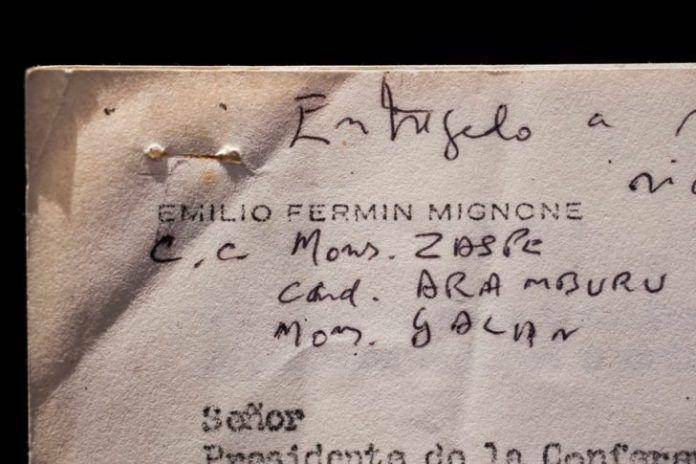 Entrégelo a
EMILIO FERMIN MIGNONE
C.C Mons. ZASPE
Card. ARAMBURU
Mons. GALAN
Señor
Presidente de la Confere